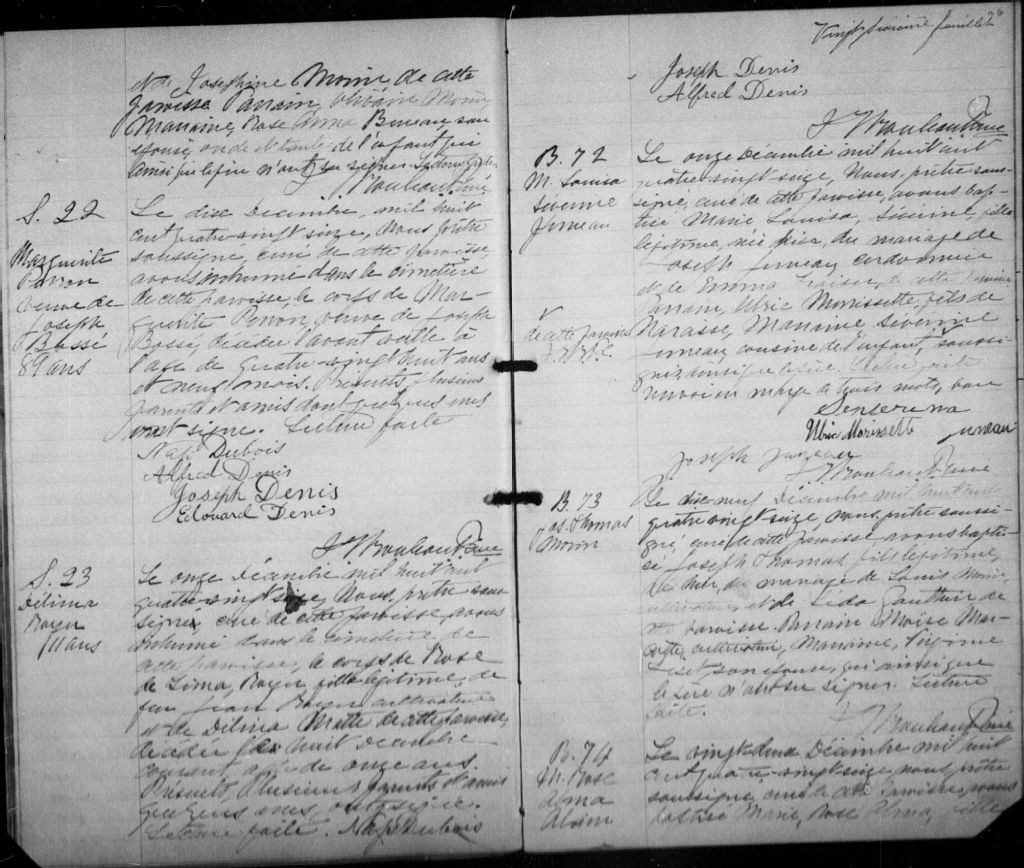 et de Josephine Morin de cette
paroisse Parrain, Morin,
Marraine, Rose Anna Bineau son
épouse, oncle et tante de l'enfant qui
ainsi que le père n'ont su signer. Lecture faite.
S. 22
Marguerite
Perron
veuve de
Joseph
Bossé
89 ans
Le dix Decembre, mil huit
cent quatre-vingt seize, Nous prêtre
soussigné, curé de cette paroisse,
avons inhumé dans le cimetière
de cette paroisse, le corps de Mar-
guerite Perron, veuve de Joseph
Bossé, décédée l'avant veille à
l'age de quatre-vingt huit ans
et neuf mois. Présents, plusieurs
parents et amis dont quelques unes
ont signé. Lecture faite
Nap Dubois
Alfred Denis
Joseph Denis
Edouard Denis
S. 23
Délima
Boyer
11 ans
Le onze Décembre mil huit cent
quatre-vingt seize, Nous, prêtre sous-
signé curé de cette paroisse avons
inhumé dans le cimetière de
cette paroisse, le corps de Rose
de Lima, Boyer fille légitime, de
feu Jean Boyer cultivateur
et de Délima de cette paroisse,
décédée le huit decembre
courant agée de onze ans.
Présents, plusieurs parents et amis
quelques unes ont signé.
Lecture faite. Nap Dubois
26
Vingt sixième feuillet
Joseph Denis
Alfred Denis
B. 72
M. Louisa
Sévérine
Juneau
Le onze Décembre mil huit cent
quatre-vingt-seize, Nous, prêtre sous-
signé, curé de cette paroisse, avons bap-
tisé Marie Louisa, Sévérine, fille
légitime, née hier, du mariage de
Joseph Juneau cordonnier
et de Emma de cette paroisse
Parrain, Ulric Morissette, fils de
Narcisse, Marraine Sévérine
Juneau cousine de l'enfant, soussi-
gnés ainsi que le père. Lecture faite
renvoi en marge de trois mots, bon
de cette paroisse
Ulric Morissette Juneau
Joseph Juneau
B. 73
Jos. Thomas
Morin
Le dix-neuf Décembre mil huit cent
quatre vingt-seize, nous, prêtre soussi-
gné, curé de cette paroisse avons bapti-
sé Joseph Thomas, fils légitime,
né hier, du mariage de Louis Morin,
cultivateur, et de Lida Gauthier de
cette paroisse. Parrain Moise Mar-
cotte, cultivateur, Marraine,
son épouse, qui ainsi que
le père n'ont su signer. Lecture
faite.
B. 74
M. Rose
Alma
Le vingt-deux Décembre mil huit
cent quatre-vingt-seize, nous, prêtre
soussigné, curé de cette paroisse, avons
baptisé Marie, Rose Alma, fille